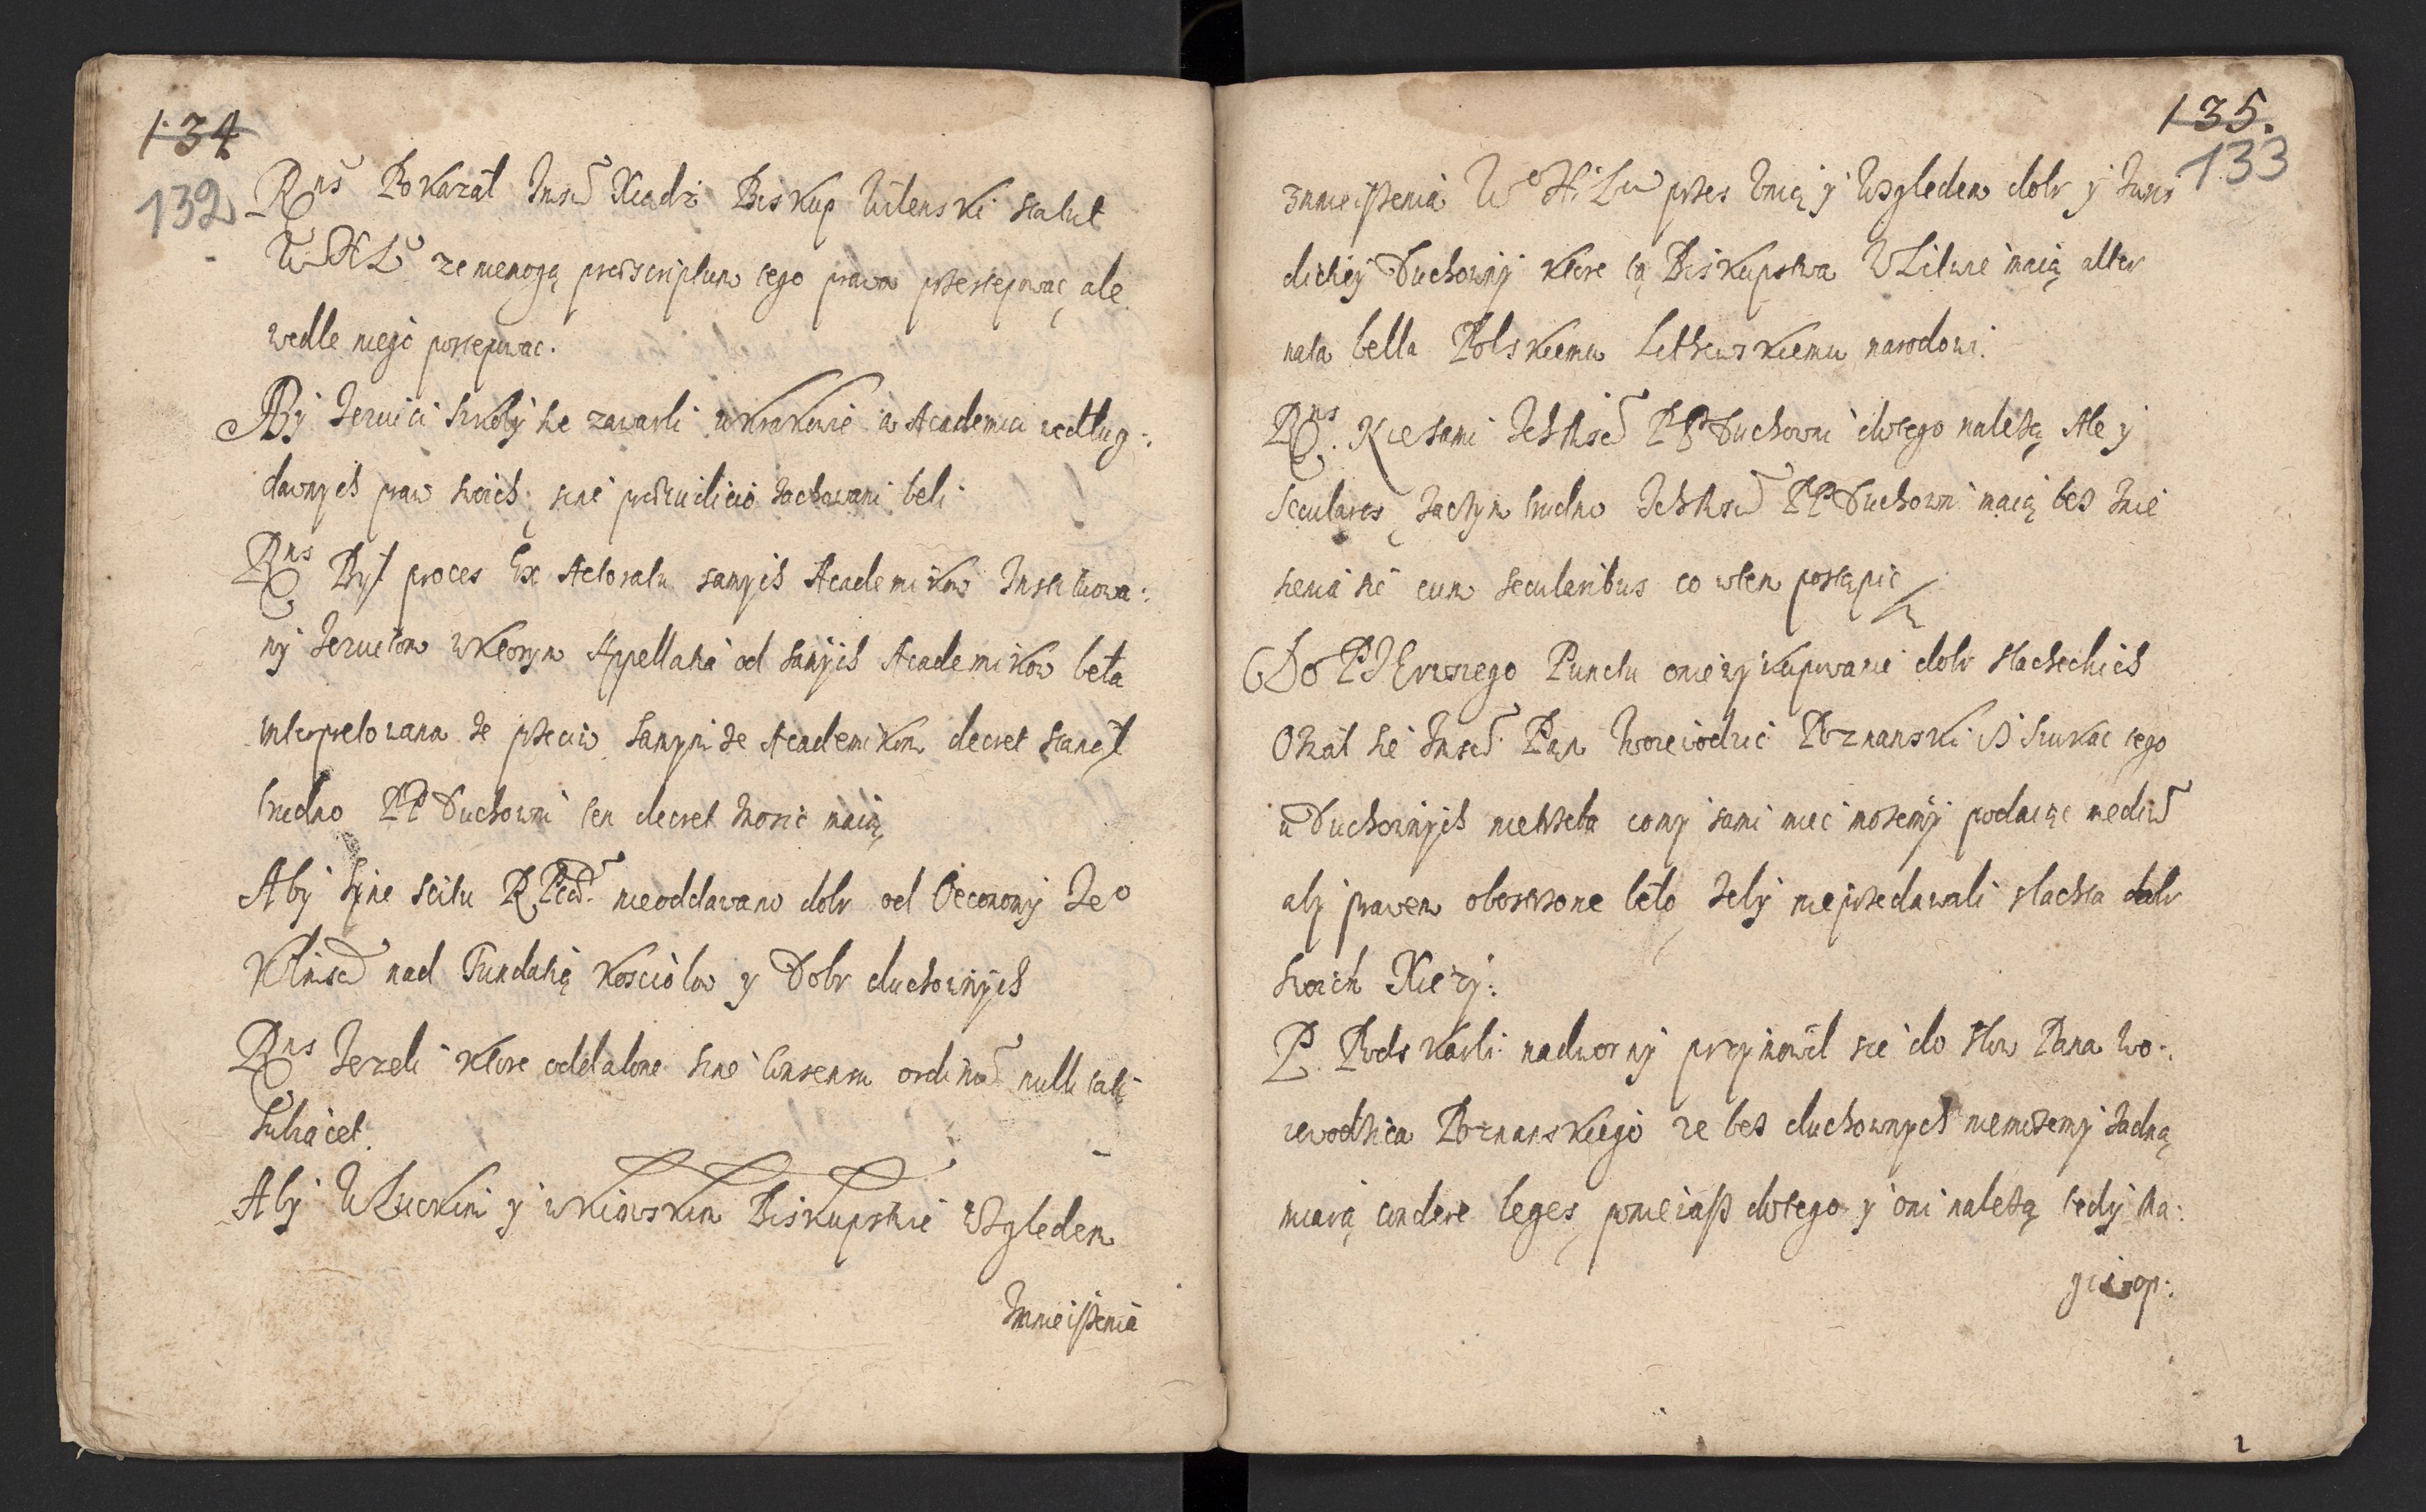 134
132
Rns Pokazał Jmsc Xiadz Biskup Wilenski statut
W X L ze niemogą prescriptum tego prawa przestepowac, ale
wedle niego postepowac.
Aby Jezuici szkoły se zawarli w Krakowie a Academici według:
dawnych praw swoich, sine preiudicio zachowani beli
Rns Był proces Ex Actoratu samych Academikow Instituowa:
ny Jezuitom w ktorym Appellatia od samych Academikow beła
interpretowana ze przeciw samym ze Academikom decret stanął
trudno PP Duchowni ten decret znosic maią
Aby sine scitu R. nieoddawano dobr od Oeconomy Jeo
KMsci nad Fundatią kosciołow y Dobr duchownych
Rns Jezeli ktore oddalone sine consensu ordinum nullitati
subiacet.
Aby W Luckim y w Kiowskim Biskupstwie Wzgledem
Zmnieiszenia
135.
133
zmnieiszenia W X Lu przez Unią y Wzgledem dobr y Juris
dictiey Duchowny ktore są Biskupstwa W Litwie maią alter
nata bella Polskiemu Lithewskiemu narodowi.
Rns. Nie sami Ichmsc PP Duchowni do tego należą Ale y
seculares, zaczym trudno Ichmsc PP Duchowni maią bez znie
sienia sie cum secularibus co w tem postąpic
Do PIErwszego Punctu o niezykupowanie dobr slacheckich
Ozwał sie Jmsc Pan Woiewodzic Poznanski iż szukac tego
u Duchownych nietrzeba co my sami miec mozemy podaiąc medium
aby prawem obostrzone beło, zeby nieprzedawali slachta dobr
swoich Xiezy:
P. Podskarbi nadworny przymowił sie do słow Pana Wo:
iewodzica Poznanskiego ze bez duchownych niemozemy żadną
miarą condere leges, poniewasz do tego y oni należą tedy ma: